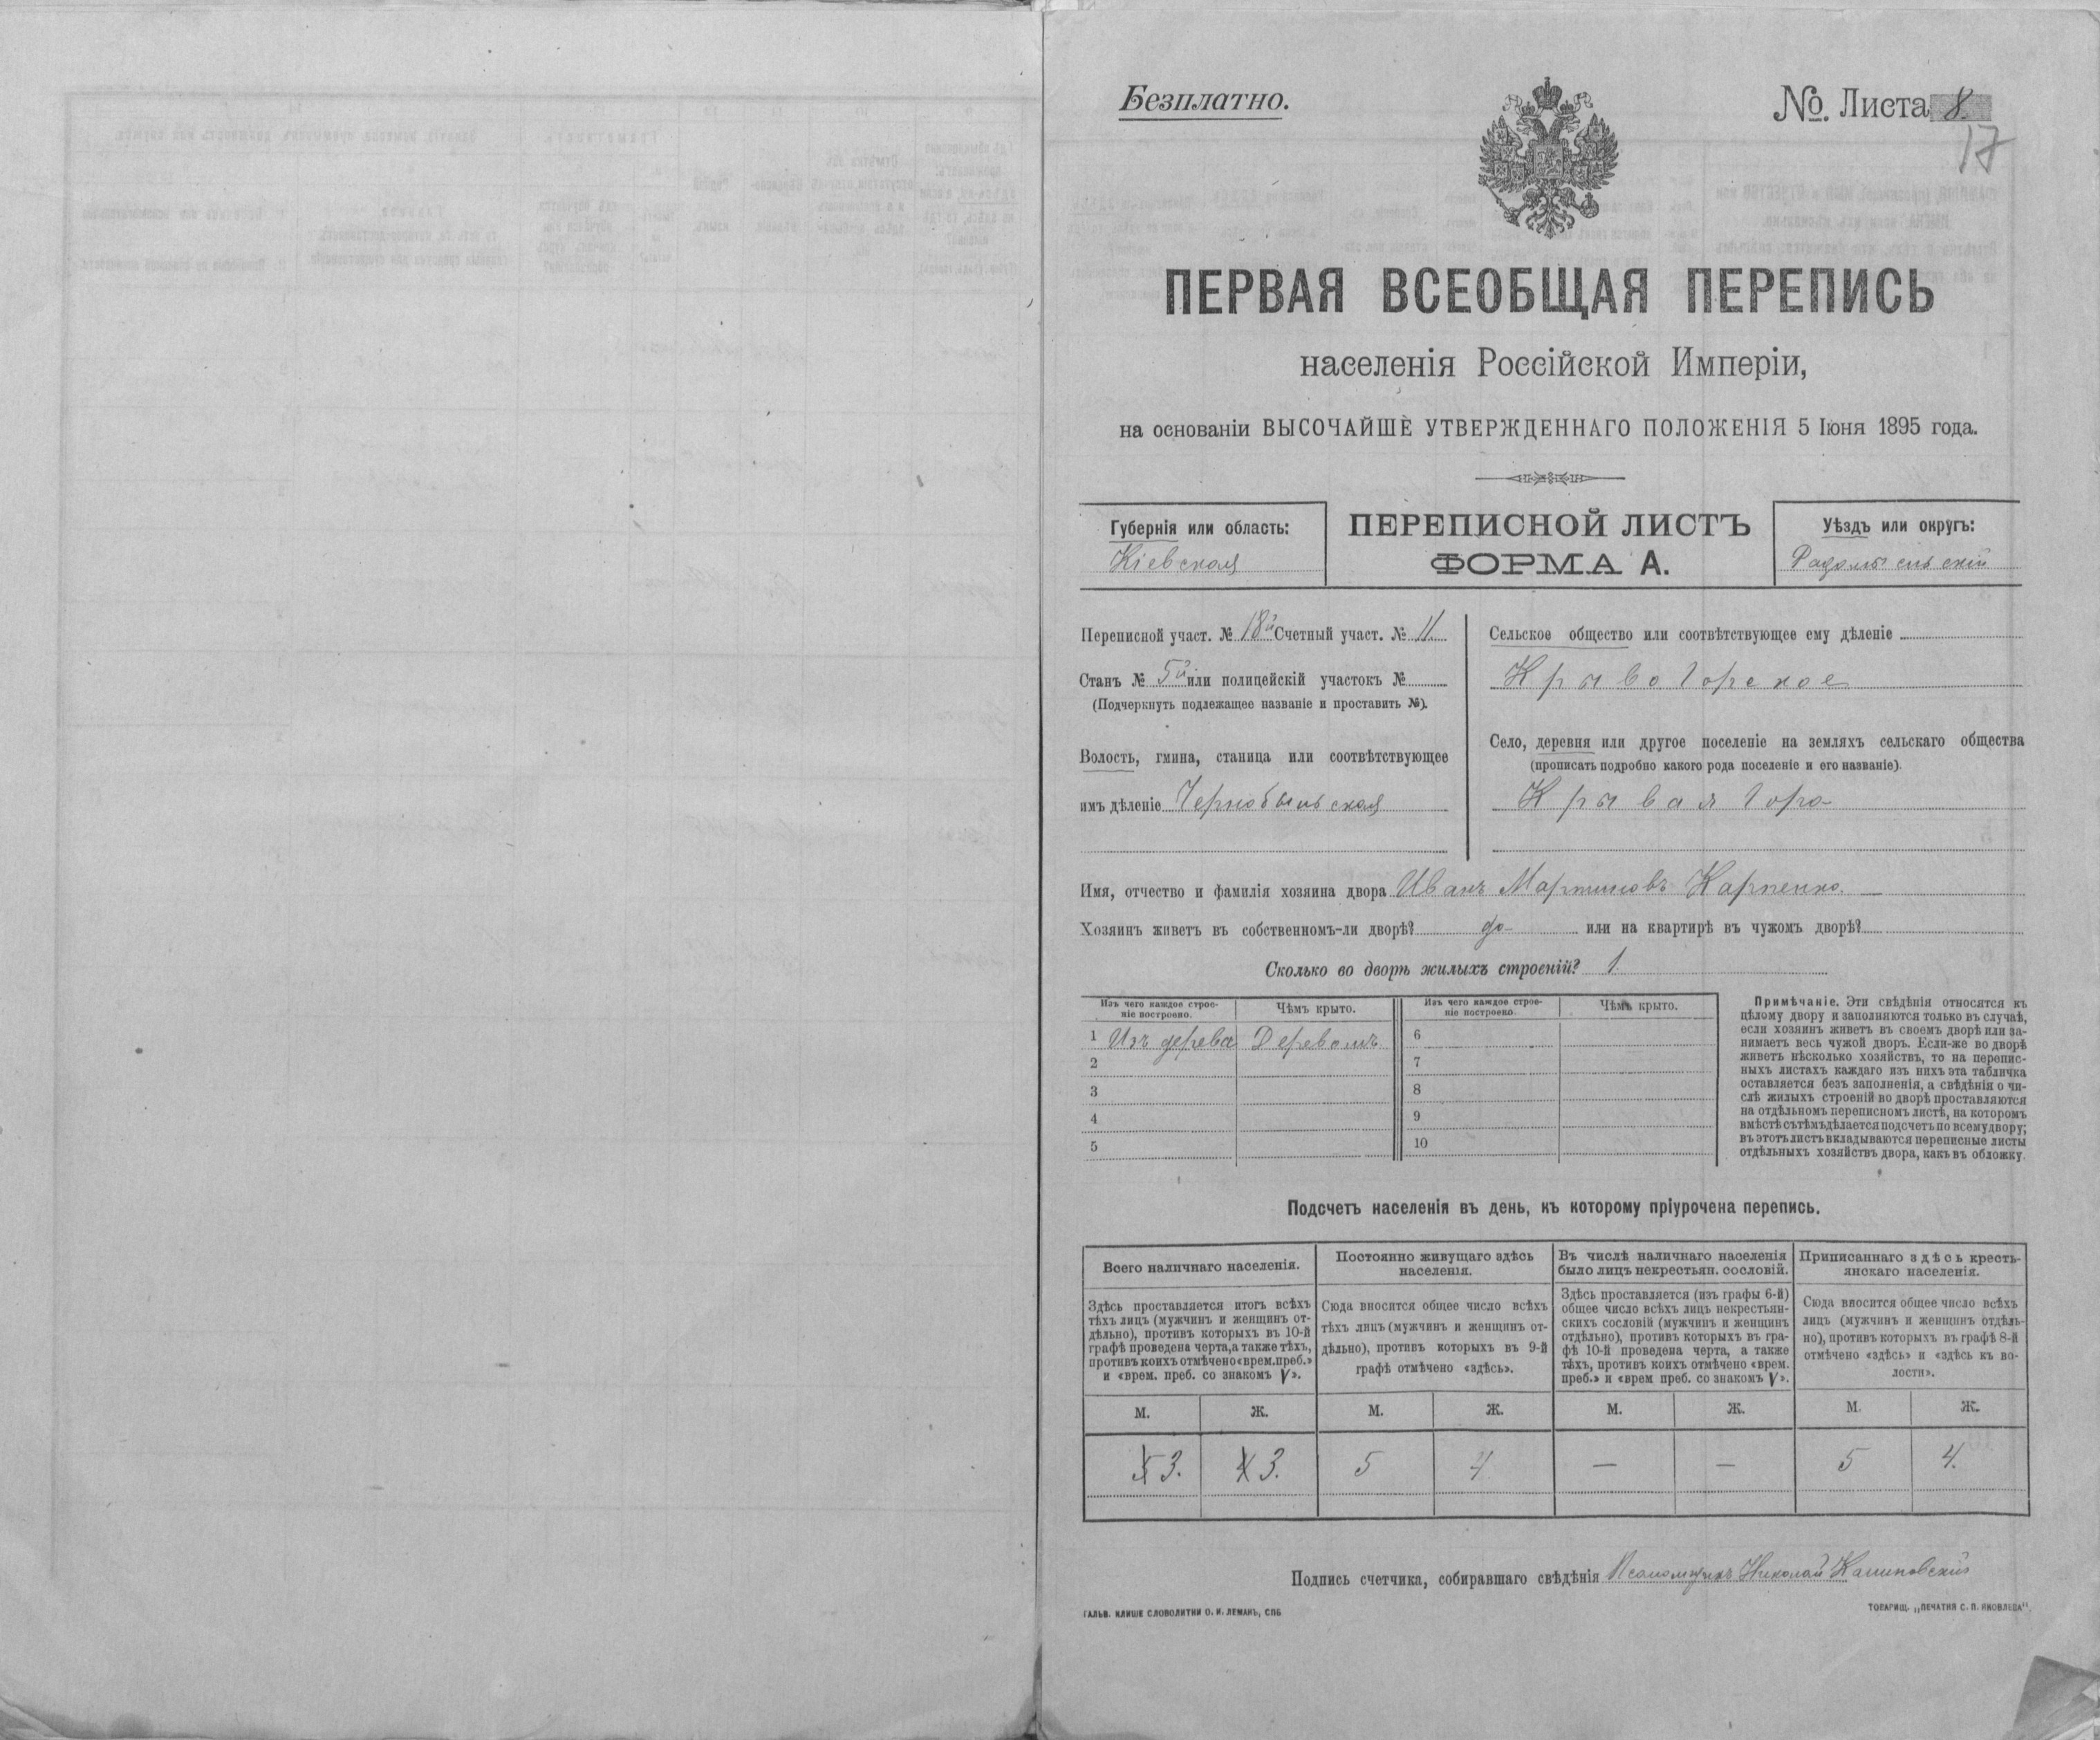 Безплатно.
№. Листа 8.
17
ПЕРВАЯ ВСЕОБЩАЯ ПЕРЕПИСЬ
населенія Россійской Имперіи,
на основаніи ВЫСОЧАЙШЕ УТВЕРЖДЕННАГО ПОЛОЖЕНІЯ 5 Іюня 1895 года.
Губернія или область:
Кіевская
ПЕРЕПИСНОЙ ЛИСТЪ
ФОРМА А.
Уѣздъ или округъ:
Радомысльскій
Переписной участ. № 18й Счетный участ. № 11.
Станъ № 5й или полицейскій участокъ №
(Подчеркнуть подлежащее названіе и проставить №).
Волость, гмина, станица или соотвѣтствующее
имъ дѣленіе Чернобыльская
Сельское общество или соотвѣтствующее ему дѣленіе
Крывогорское
Село, деревня или другое поселеніе на земляхъ сельскаго общества
(прописать подробно какого рода поселеніе и его названіе).
Крывая Гора
Имя, отчество и фамилія хозяина двора Иванъ Мартиновъ Карпенко.
Хозяинъ живетъ въ собственномъ-ли дворѣ? да или на квартирѣ въ чужомъ дворѣ?
Сколько во дворѣ жилыхъ строеній? 1.
Изъ чего каждое строе-
ніе построено.
Чѣмъ крыто.
Изъ чего каждое строе-
ніе построено
Чѣмъ крыто.
1 Изъ дерева Деревомъ
2
3
4
5
6
7
8
9
10
Примѣчаніе. Эти свѣдѣнія относятся къ
цѣлому двору и заполняются только въ случаѣ,
если хозяинъ живетъ въ своемъ дворѣ или за-
нимаетъ весь чужой дворъ. Если-же во дворѣ
живетъ нѣсколько хозяйствъ, то на перепис-
ныхъ листахъ каждаго изъ нихъ эта табличка
оставляется безъ заполненія, а свѣдѣнія о чи-
слѣ жилыхъ строеній во дворѣ проставляются
на отдѣльномъ переписномъ листѣ, на которомъ
вмѣстѣ съ тѣмъ дѣлается подсчетъ по всему двору;
въ этотъ листъ вкладываются переписные листы
отдѣльныхъ хозяйствъ двора, какъ въ обложку.
Подсчетъ населенія въ день, къ которому пріурочена перепись.
Всего наличнаго населенія.
Здѣсь проставляется итогъ всѣхъ
тѣхъ лицъ (мужчинъ и женщинъ от-
дѣльно), противъ которыхъ въ 10-й
графѣ проведена черта, а также тѣхъ,
противъ коихъ отмѣчено «врем. преб.»
и «врем. преб. со знакомъ V».
Постоянно живущаго здѣсь
населенія.
Сюда вносится общее число всѣхъ
тѣхъ лицъ (мужчинъ и женщинъ от-
дѣльно), противъ которыхъ въ 9-й
графѣ отмѣчено «здѣсь».
Въ числѣ наличнаго населенія
было лицъ некрестьян. сословій.
Здѣсь проставляется (изъ графы 6-й)
общее число всѣхъ лицъ некрестьян-
скихъ сословій (мужчинъ и женщинъ
отдѣльно), противъ которыхъ въ гра-
фѣ 10-й проведена черта, а также
тѣхъ, противъ коихъ отмѣчено «врем.
преб.» и «врем преб. со знакомъ V».
Приписаннаго здѣсь кресть-
янскаго населенія.
Сюда вносится общее число всѣхъ
лицъ (мужчинъ и женщинъ отдѣль-
но), противъ которыхъ въ графѣ 8-й
отмѣчено «здѣсь» и «здѣсь къ во-
лости».
М. Ж. М. Ж. М. Ж. М. Ж.
5 3. 4 3. 5 4 — — 5 4.
Подпись счетчика, собиравшаго свѣдѣнія Псаломщикъ Николай Калиновскій
ГАЛЬВ. КЛИШЕ СЛОВОЛИТНИ О. И. ЛЕМАНЪ, СПБ
ТОВАРИЩ. „ПЕЧАТНЯ С. П. ЯКОВЛЕВА".